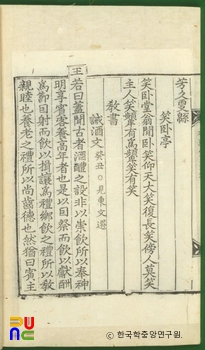 笑卧亭
笑卧堂翁閒卧笑仰天大笑復長笑傍人莫笑
主人笑顰有爲顰笑有笑
敎書
誡酒文 癸丑○見東文選
王若曰蓋聞古者酒醴之設非以崇飮所以奉神
明享賓客養高年者也是以因祭而飮以獻酬
爲節因射而飮以揖讓爲禮鄕飮之禮所以敎
親睦也養老之禮所以尙齒德也然猶曰賓主
ⓒ 한국학중앙연구원.